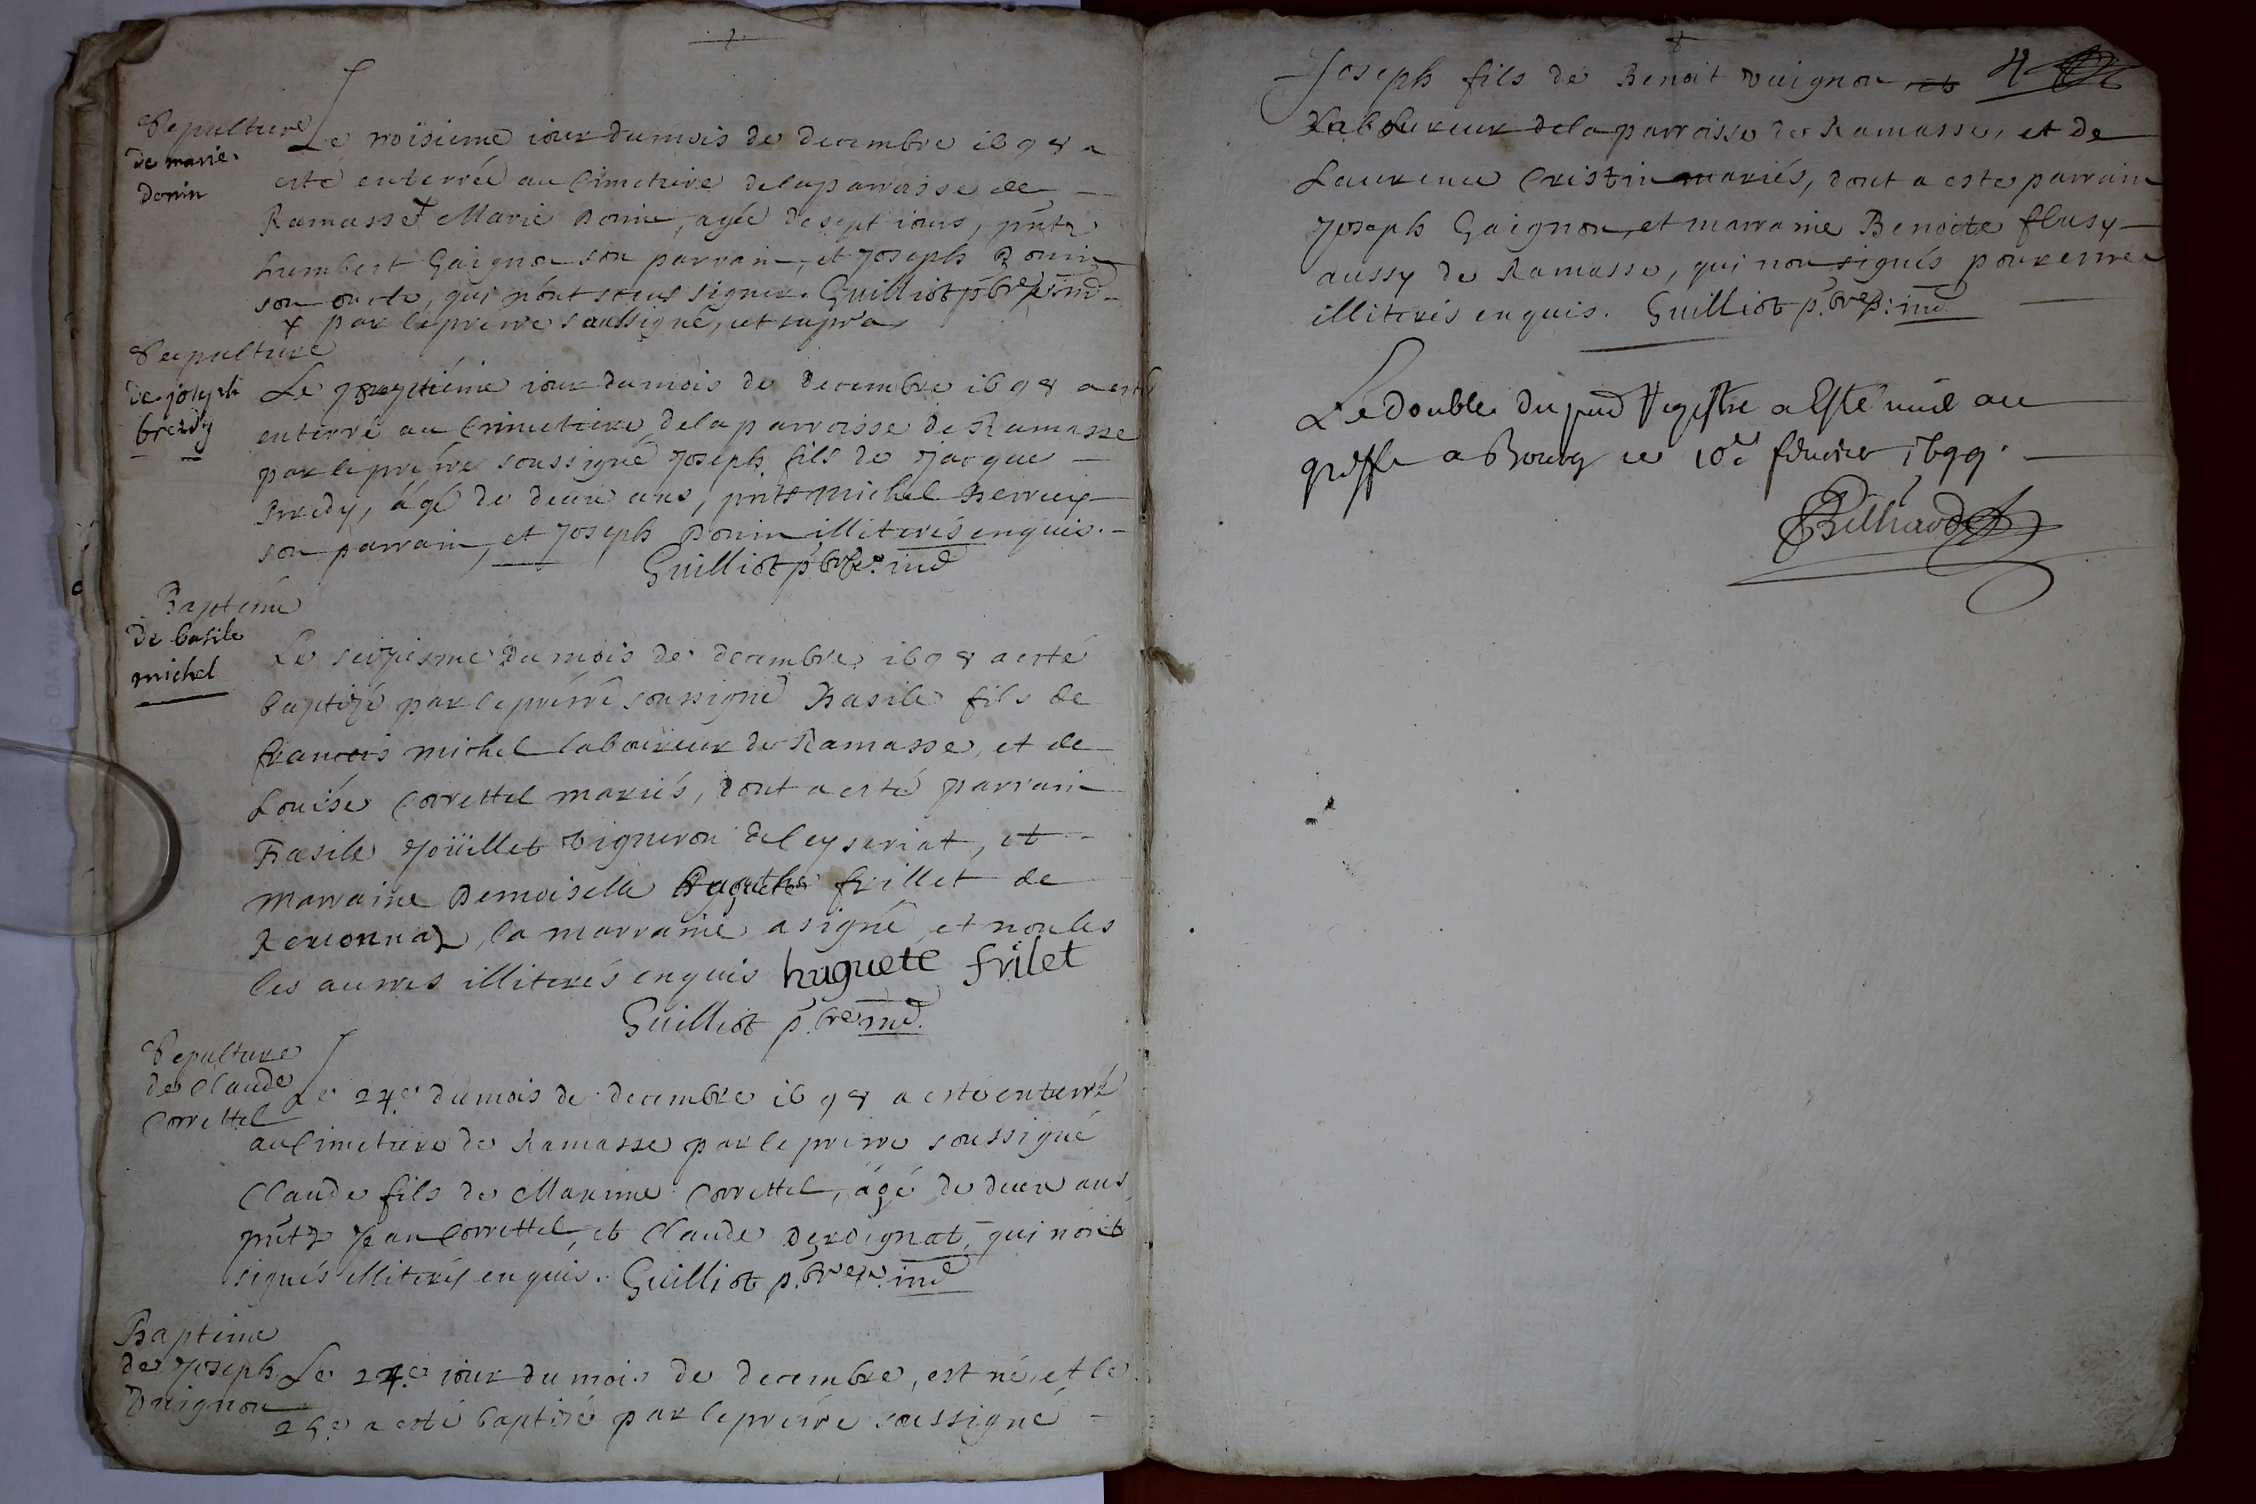 Sepulture
de marie
donin
Le troisieme iour du mois de decembre 1698 a
esté enterrée au Cimetiere de la parroisse de
Ramasse + Marie Donin, agée de sept iours, pntz
humbert Gaignon son parrain, et Joseph Donin
son oncle, qui n'ont sceus signer. Guilliot p.bre p: ind
+ par le pretre soussigné, ut supra
Sepulture
de joseph
bredy
Le iour du mois de decembre 1698 a esté
enterré au Cimetiere de la parroisse de Ramasse
par le pretre soussigné Joseph fils de Jacque
Bredy, âgé de deux ans, pntz Michel
son parrain, et Joseph Donin illiterés enquis.
Guilliot p.bre p. ind
Baptême
de basile
michel
Le seiziesme du mois de decembre 1698 a esté
baptizé par le prêtre soussigné Basile fils de
francois michel laboureur de Ramasse, et de
Louise Correttel mariés, dont a esté parrain
Basile Joüillet vigneron de Ceyseriat, et
marraine Demoiselle frillet de
Revonnaz, la marraine a signé, et non les
les autres illiterés enquis huguete frilet
Guilliot p.bre ind.
Sepulture
de Claude
Correttel
Le 24.e du mois de decembre 1698 a esté enterré
au Cimetiere de Ramasse par le pretre soussigné
Claude fils de Maxime Correttel, âgé de deux ans
pntz Jean Correttel, et Claude Derdignat, qui n'ont
signés illiterés enquis. Guilliot p.bre p. ind
Baptême
de Joseph
Vuignon
Le 24.e iour du mois de decembre, est né, et le
25.e a esté baptizé par le prêtre soussigné
4
Joseph fils de Benoit vuignon
Laboureur de la parroisse de Ramasse, et de
Laurence Cristin mariés, dont a esté parrain
Joseph Gaignon, et marraine Benoite flusy
aussy de Ramasse, qui non signés pour estre
illiterés enquis. Guilliot p.bre p: ind
Le double du pnt Registre a Esté mis au
greffe a Bourg ce 10.e fevrier 1699.